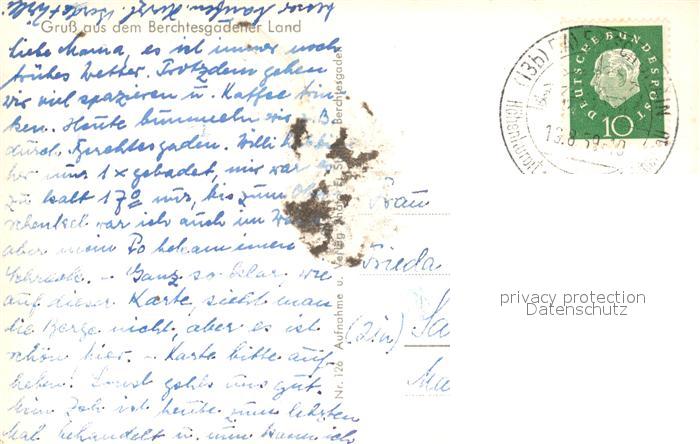 Gruß aus dem Berchtesgadener Land
Liebe Mama, es ist immer noch
frühes Wetter. Trotzdem gehen
wir viel spazieren u. Kaffee trin-
ken. Heute bummeln wir z. B.
durch Berchtesgaden. Willi hat bis-
her nur 1x gebadet, mir war es
zu kalt 17° nur, bis zum Ober-
schenkel war ich auch im Wasser
aber mein Po bekam einen
Schreck. - Ganz so klar, wie
auf dieser Karte, sieht man
die Berge nicht, aber es ist
schön hier. - Karte bitte auf
heben! Sonst gehts uns gut.
Mein Zah ist heute zum letzten
Mal behandelt u. nun kann ich
Nr. 126 Aufnahme u. Verlag
Berchtesgaden
DEUTSCHE BUNDESPOST
10
(13b)
13.8.59
Frau
Frieda
privacy protection
Datenschutz